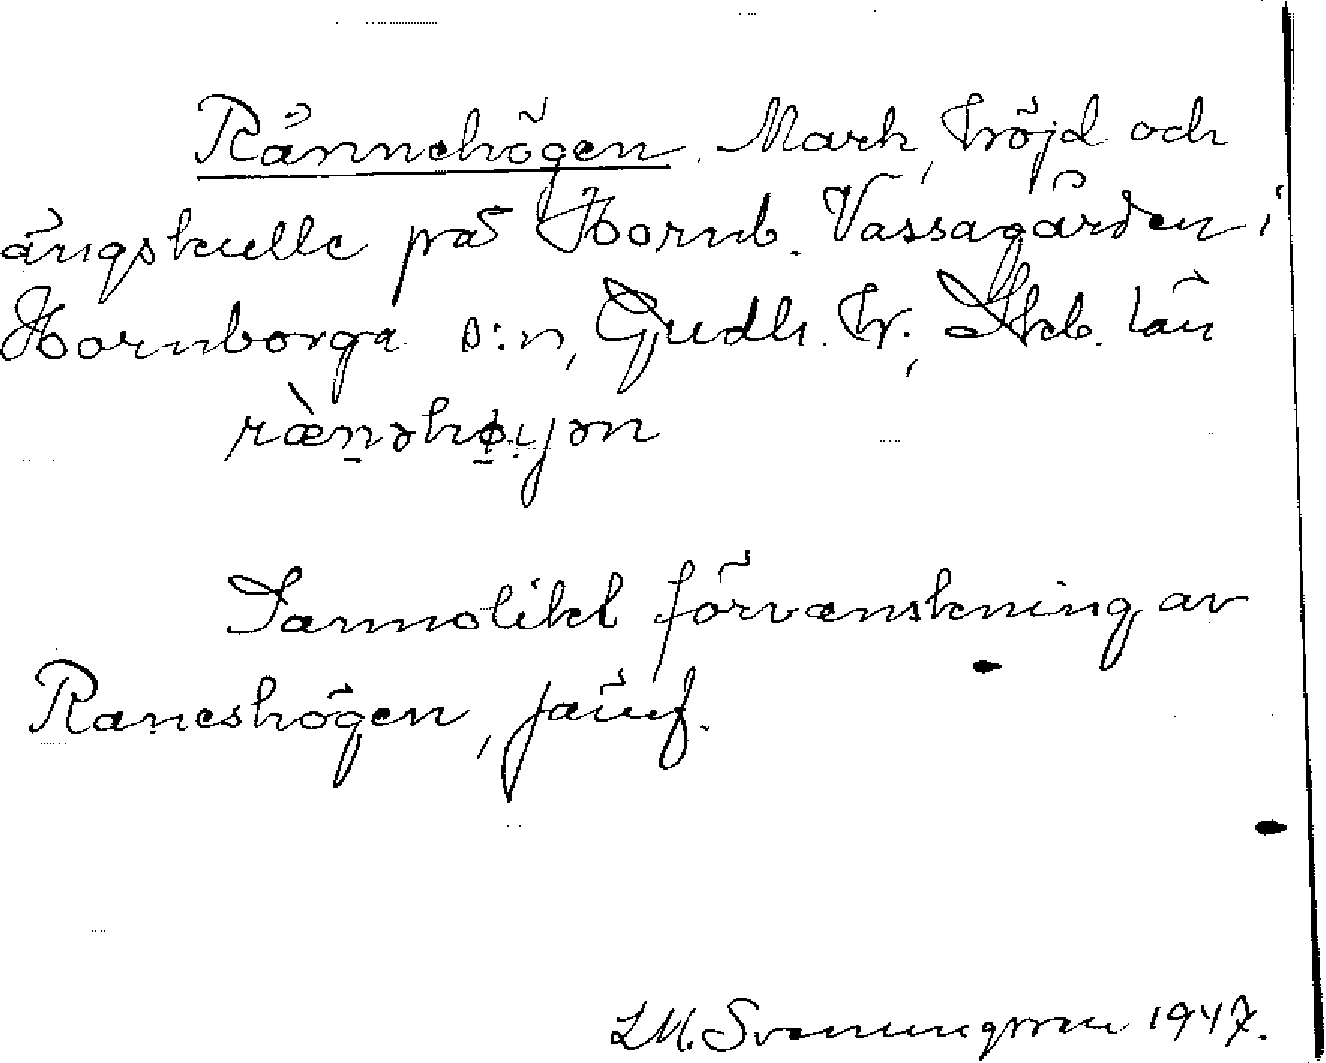 Rännehögen. Mark, höjd och
ängskulle på Hornb. Vässagården i
Hornborga s:n, Gudh. hr., Skb. län
ræ̀nəhøyən
Sannolikt förvanskning av
Raneshögen, jämf.
L M. Svenungsson 1947.